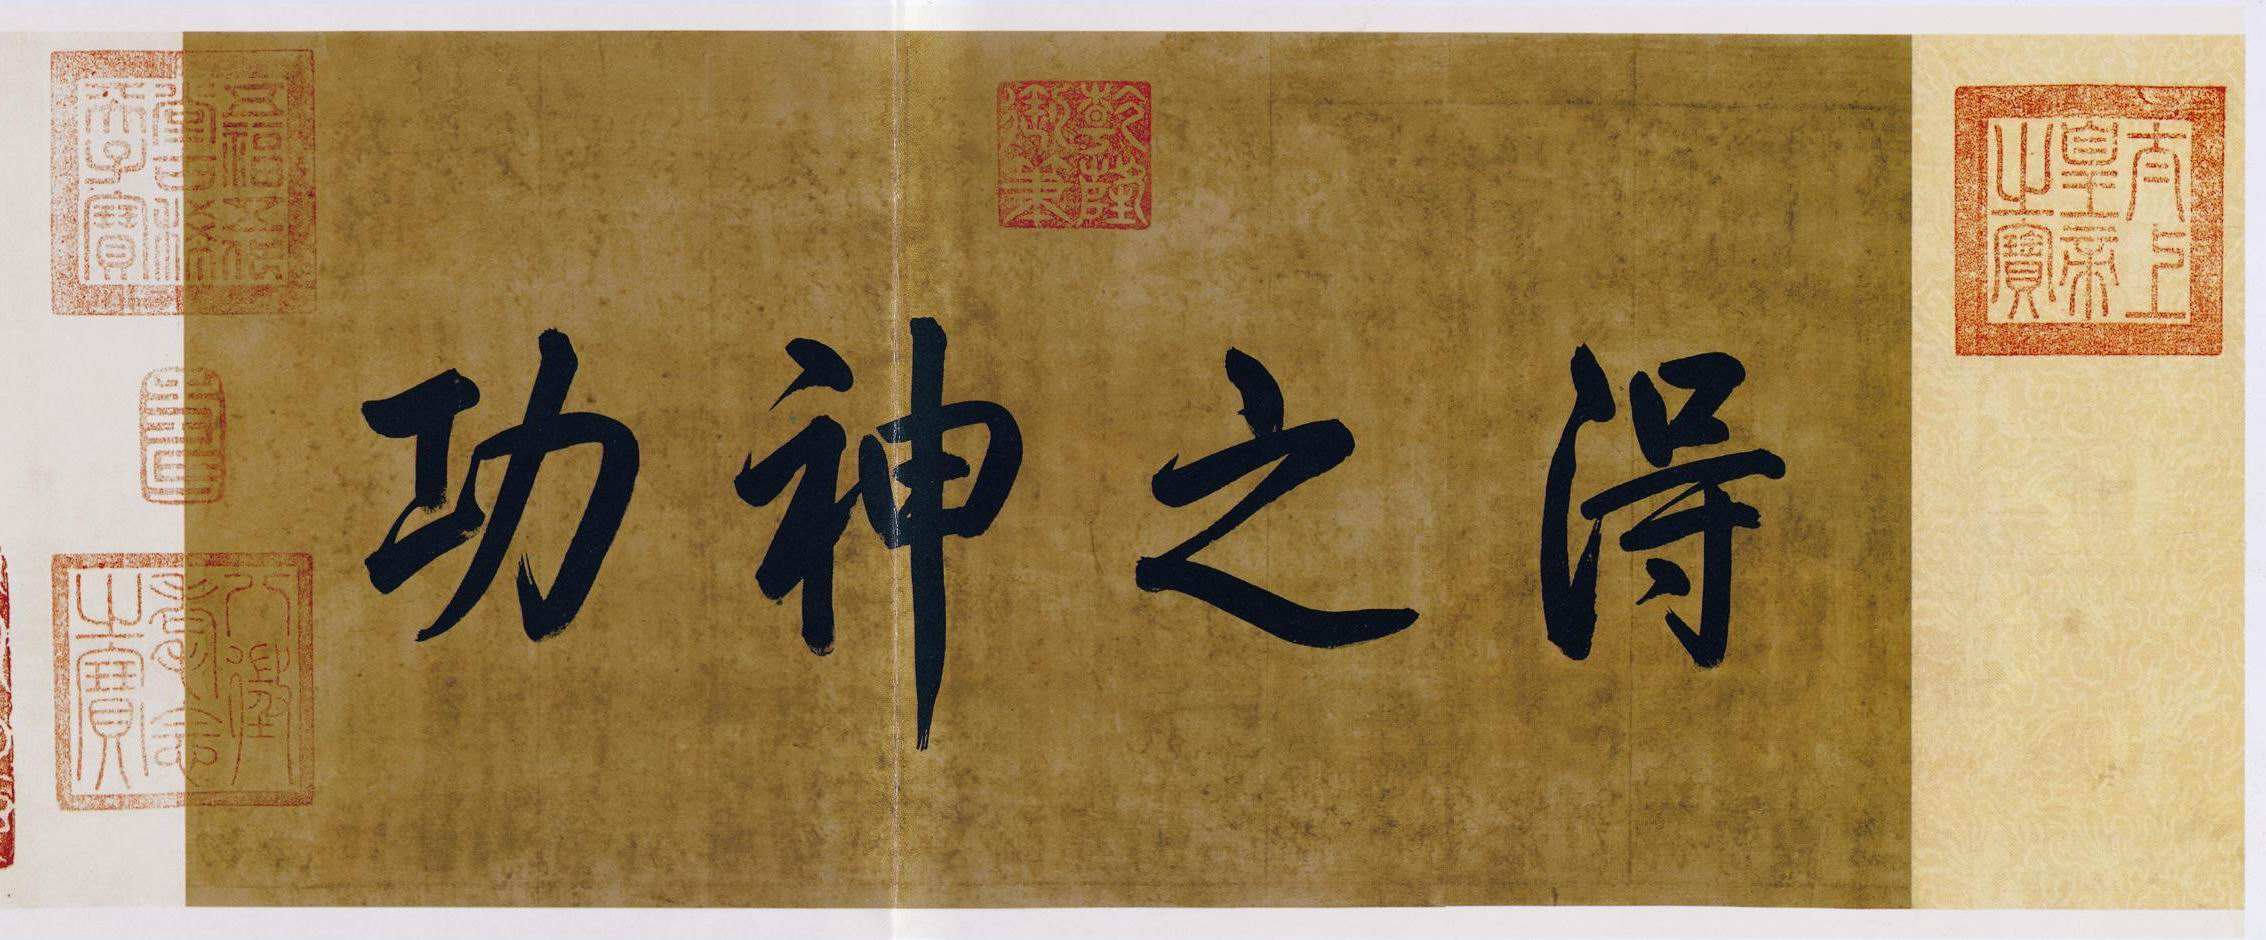 太上皇帝之寶
得之神功
乾隆御筆
五福五代堂古稀天子寶
八徵耄念之寶